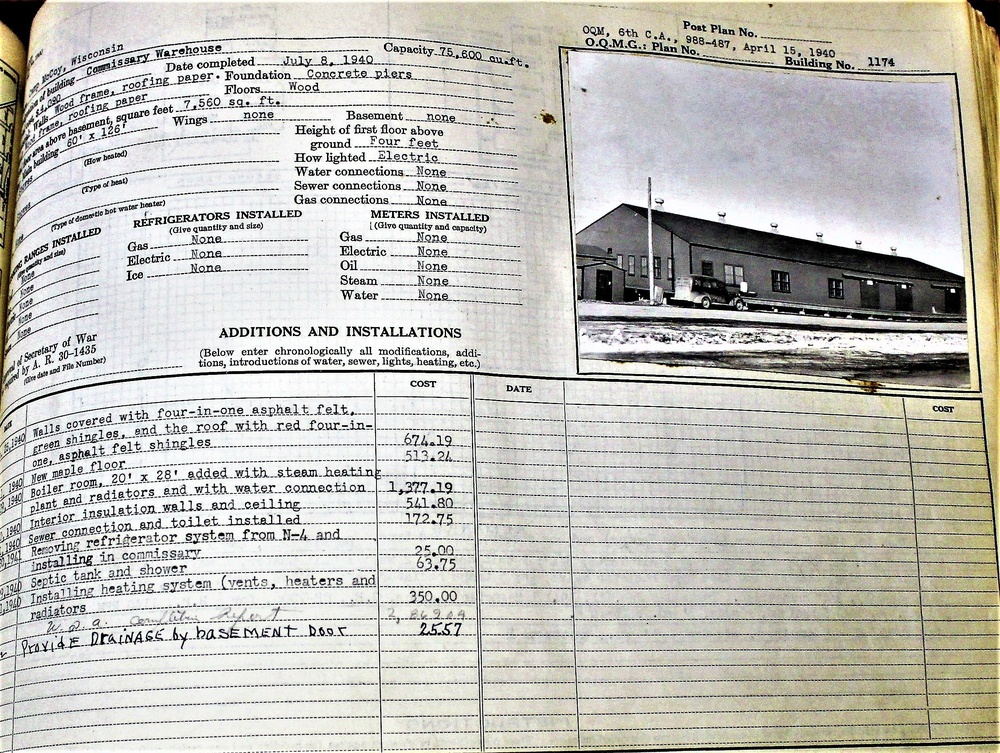 Post Plan No.
OQM, 6th C.A., 988-487, April 15, 1940
O.Q.M.G.: Plan No.
Building No. 1174
McCoy, Wisconsin
of building Commissary Warehouse
Capacity 75,600 cu.ft.
Date completed July 8, 1940
Walls Wood frame, roofing paper. Foundation Concrete piers
Wood frame, roofing paper Floors Wood
area above basement, square feet 7,560 sq. ft.
building 60' x 126' Wings none Basement none
Height of first floor above
ground Four feet
(How heated)
How lighted Electric
Water connections None
(Type of heat)
Sewer connections None
Gas connections None
(Type of domestic hot water heater)
RANGES INSTALLED
(Give quantity and size)
None
None
None
None
None
REFRIGERATORS INSTALLED
(Give quantity and size)
Gas None
Electric None
Ice None
METERS INSTALLED
(Give quantity and capacity)
Gas None
Electric None
Oil None
Steam None
Water None
of Secretary of War
by A. R. 30-1435
(Give date and File Number)
ADDITIONS AND INSTALLATIONS
(Below enter chronologically all modifications, addi-
tions, introductions of water, sewer, lights, heating, etc.)
COST DATE COST
1940 Walls covered with four-in-one asphalt felt,
green shingles, and the roof with red four-in-
one, asphalt felt shingles 674.19
1940 New maple floor 513.24
1940 Boiler room, 20' x 28' added with steam heating
plant and radiators and with water connection 1,377.19
1940 Interior insulation walls and ceiling 541.80
1940 Sewer connection and toilet installed 172.75
1941 Removing refrigerator system from N-4 and
installing in commissary 25.00
1940 Septic tank and shower 63.75
1940 Installing heating system (vents, heaters and
radiators 350.00
W.P.A.
ProviDE DRAINAGE by bASEMENT DooR 25.57